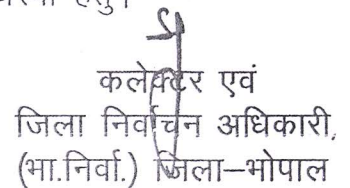 कलेक्टर एवं
जिला निर्वाचन अधिकारी,
(भा.निर्वा.) जिला–भोपाल